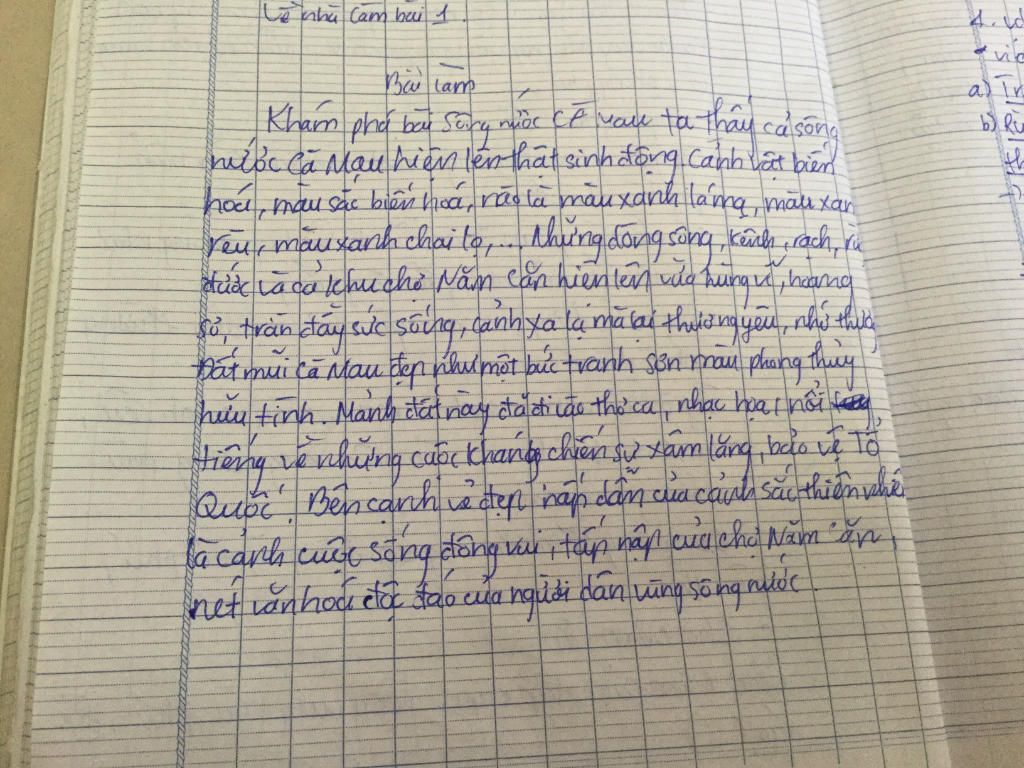 Về nhà làm bài 1.
4.
a)
b)
Bài làm
Khám phá bài sông nước Cà Mau ta thấy cả sông
nước Cà Mau hiện lên thật sinh động cảnh vật biến
hoá, màu sắc biến hoá, nào là màu xanh lá mạ, màu xan
rêu, màu xanh chai lọ,... Những dòng sông, kênh, rạch, rừ
đước và cả khu chợ Năm Căn hiện lên vừa hùng vĩ, hoang
sơ, tràn đầy sức sống, cảnh xa lạ mà lại thương yêu, nhớ thương
Đất mũi Cà Mau đẹp như một bức tranh sơn màu phong thủy
hữu tình. Mảnh đất này đã đi vào thơ ca, nhạc hoạ nổi
tiếng về những cuộc kháng chiến sự xâm lăng, bảo vệ Tổ
Quốc. Bên cạnh vẻ đẹp hấp dẫn của cảnh sắc thiên nhiê
là cảnh cuộc sống đông vui, tấp nập của chợ Năm Căn,
nét văn hoá độc đáo của người dân vùng sông nước.